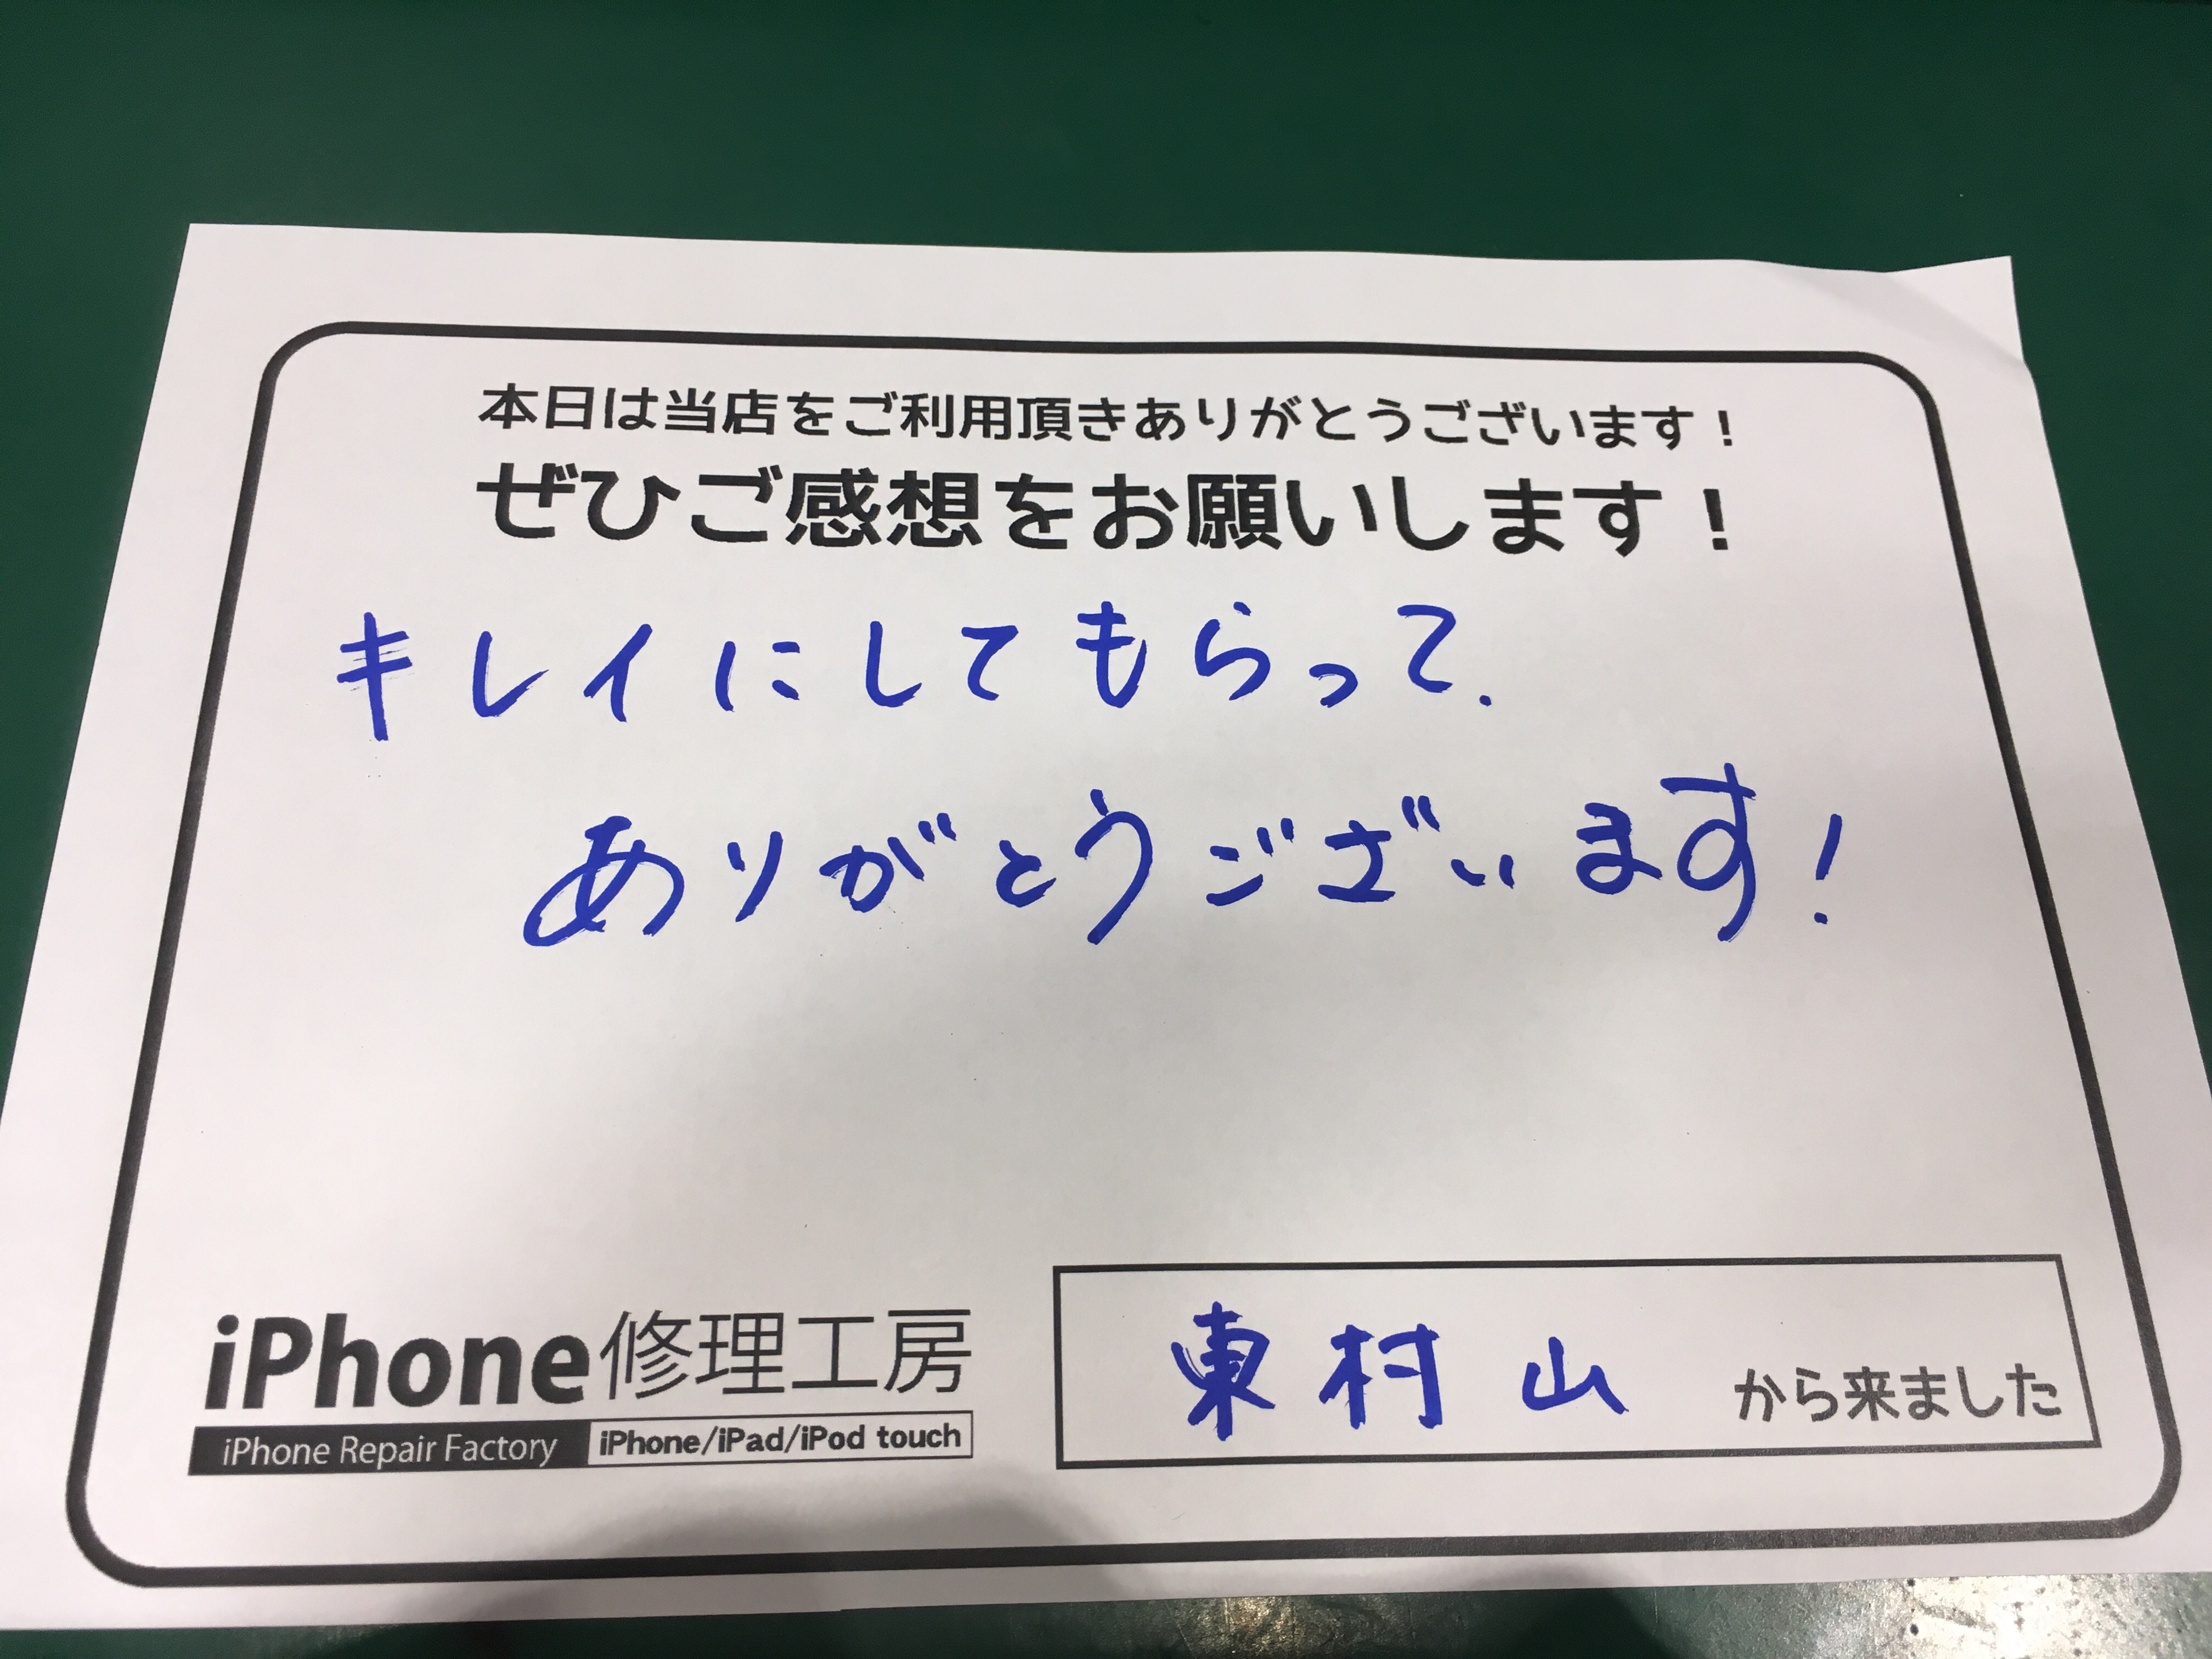 本日は当店をご利用頂きありがとうございます！
ぜひご感想をお願いします！
キレイにしてもらって.
ありがとうございます!
東村山 から来ました
iPhone修理工房
iPhone Repair Factory iPhone/iPad/iPod touch